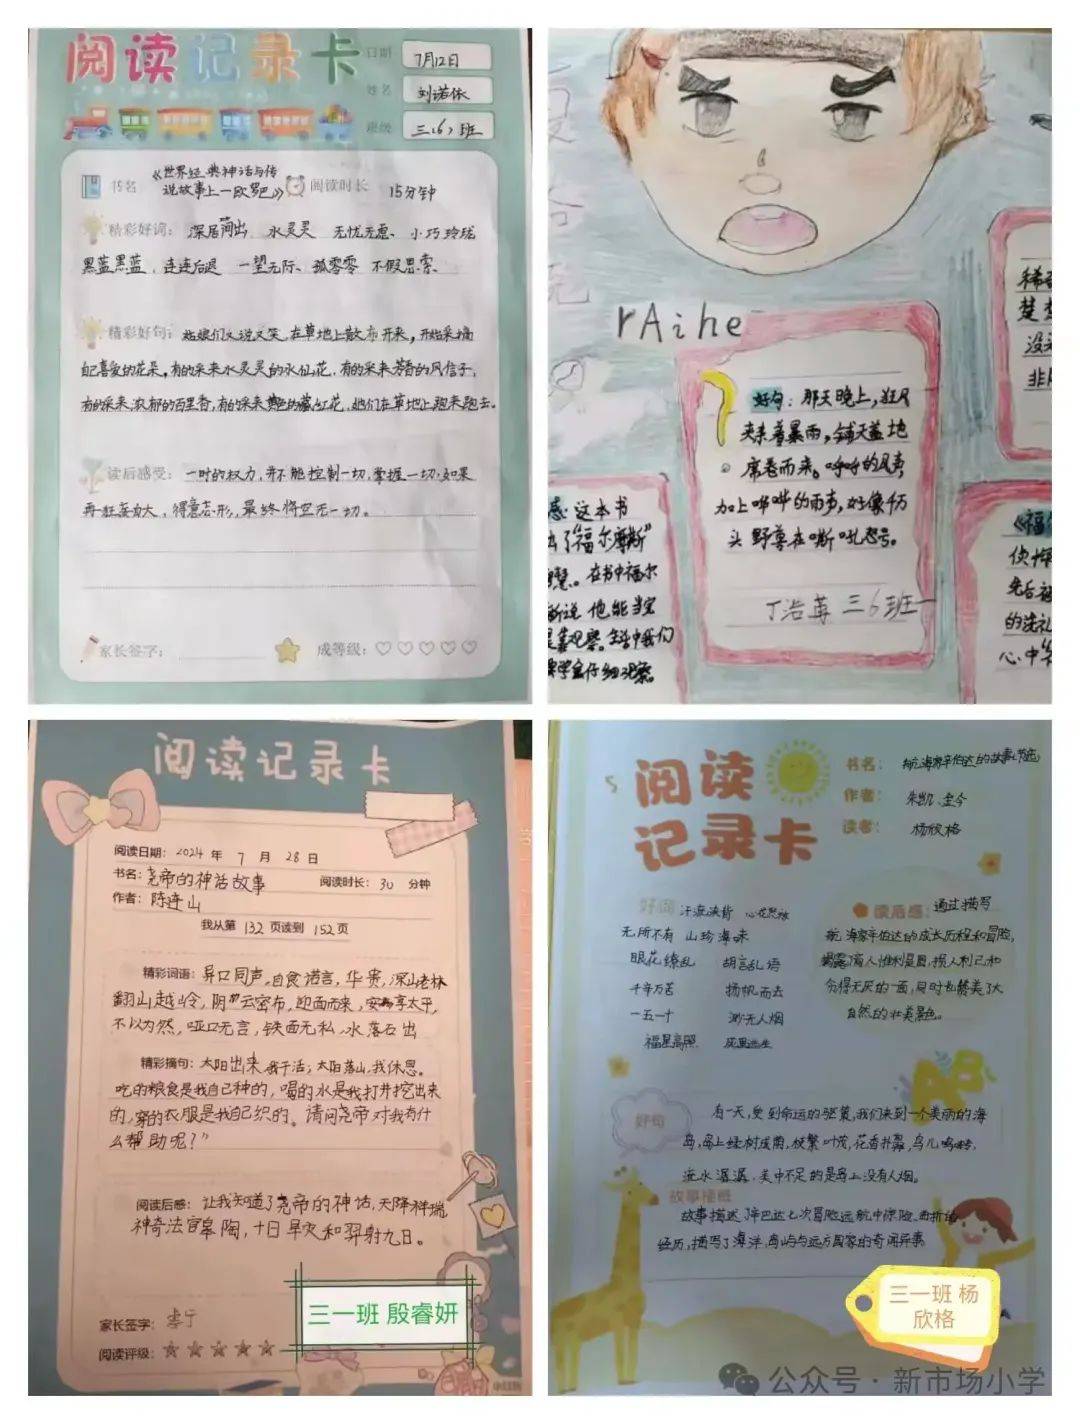 阅读记录卡
日期 7月12日
姓名 刘诺依
班级 三(6)班
书名 《世界经典神话与传
说故事上一欧罗巴》 阅读时长 15分钟
精彩好词: 深居简出 水灵灵 无忧无虑、小巧玲珑
黑蓝黑蓝、连连后退 一望无际、孤零零 不假思索、
精彩好句: 姑娘们又说又笑,在草地上散布开来,开始采摘
自己喜爱的花朵。有的采来水灵灵的水仙花,有的采来芳香的风信子,
有的采来浓郁的百里香,有的采来 的藏红花,她们在草地上跑来跑去。
读后感受: 一时的权力,并不能控制一切,掌握一切,如果
再一狂妄自大,得意忘形,最终将空无一切。
家长签字: 成等级:
rAihe
好句:那天晚上,狂风
夹杂着暴雨,铺天盖地
席卷而来。呼呼的风声
加上哗哗的雨声,好像千万
头野兽在嘶吼怒号。
丁浩 三6班
感:这本书
出了“福尔摩斯”
慧。在书中福尔
斯说他能当
是善观察。生活中我们
要学会仔细观察。
稀
楚楚
没
非
《福尔
侦
先后
的洗礼
心中
阅读记录卡
阅读日期: 2024 年 7 月 28 日
书名: 尧帝的神话故事 阅读时长: 30 分钟
作者: 陈连山
我从第 132 页读到 152 页
精彩词语: 异口同声,自食诺言,华贵,深山老林
翻山越岭,阴 云密布,迎面而来,安享太平,
不以为然,哑口无言,铁面无私,水落石出
精彩摘句: 太阳出来,我干活;太阳落山,我休息。
吃的粮食是我自己种的,喝的水是我打井挖出来
的,穿的衣服是我自己织的。请问尧帝对我有什
么帮助呢?”
阅读后感: 让我知道了尧帝的神话,天降祥瑞,
神奇法官皋陶,十日旱灾和羿射九日。
家长签字: 李宁
阅读评级:
三一班 殷睿妍
小红书
5
阅读
记录卡
书名: 航海家辛伯达的故事(节选)
作者: 朱凯、至今
读者: 杨欣格
好词 汗流浃背 心花怒放
无所不有 山珍海味
眼花缭乱 胡言乱语
千辛万苦 扬帆而去
一五一十 渺无人烟
福星高照 死里逃生
读后感: 通过描写
航海家辛伯达的成长历程和冒险,
揭露了商人唯利是图,损人利己和
贪得无厌的一面,同时也赞美了大
自然的壮美景色。
AB
好句 有一天,受到命运的驱策,我们来到一个美丽的海
岛,岛上绿树成荫,枝繁叶茂,花香扑鼻,鸟儿鸣转,
流水潺潺,美中不足的是岛上没有人烟。
故事梗概
故事描述了辛巴达七次冒险远航中惊险、曲折的
经历,描写了海洋,岛屿与远方国家的奇闻异事
三一班 杨
欣格
公众号·新市场小学